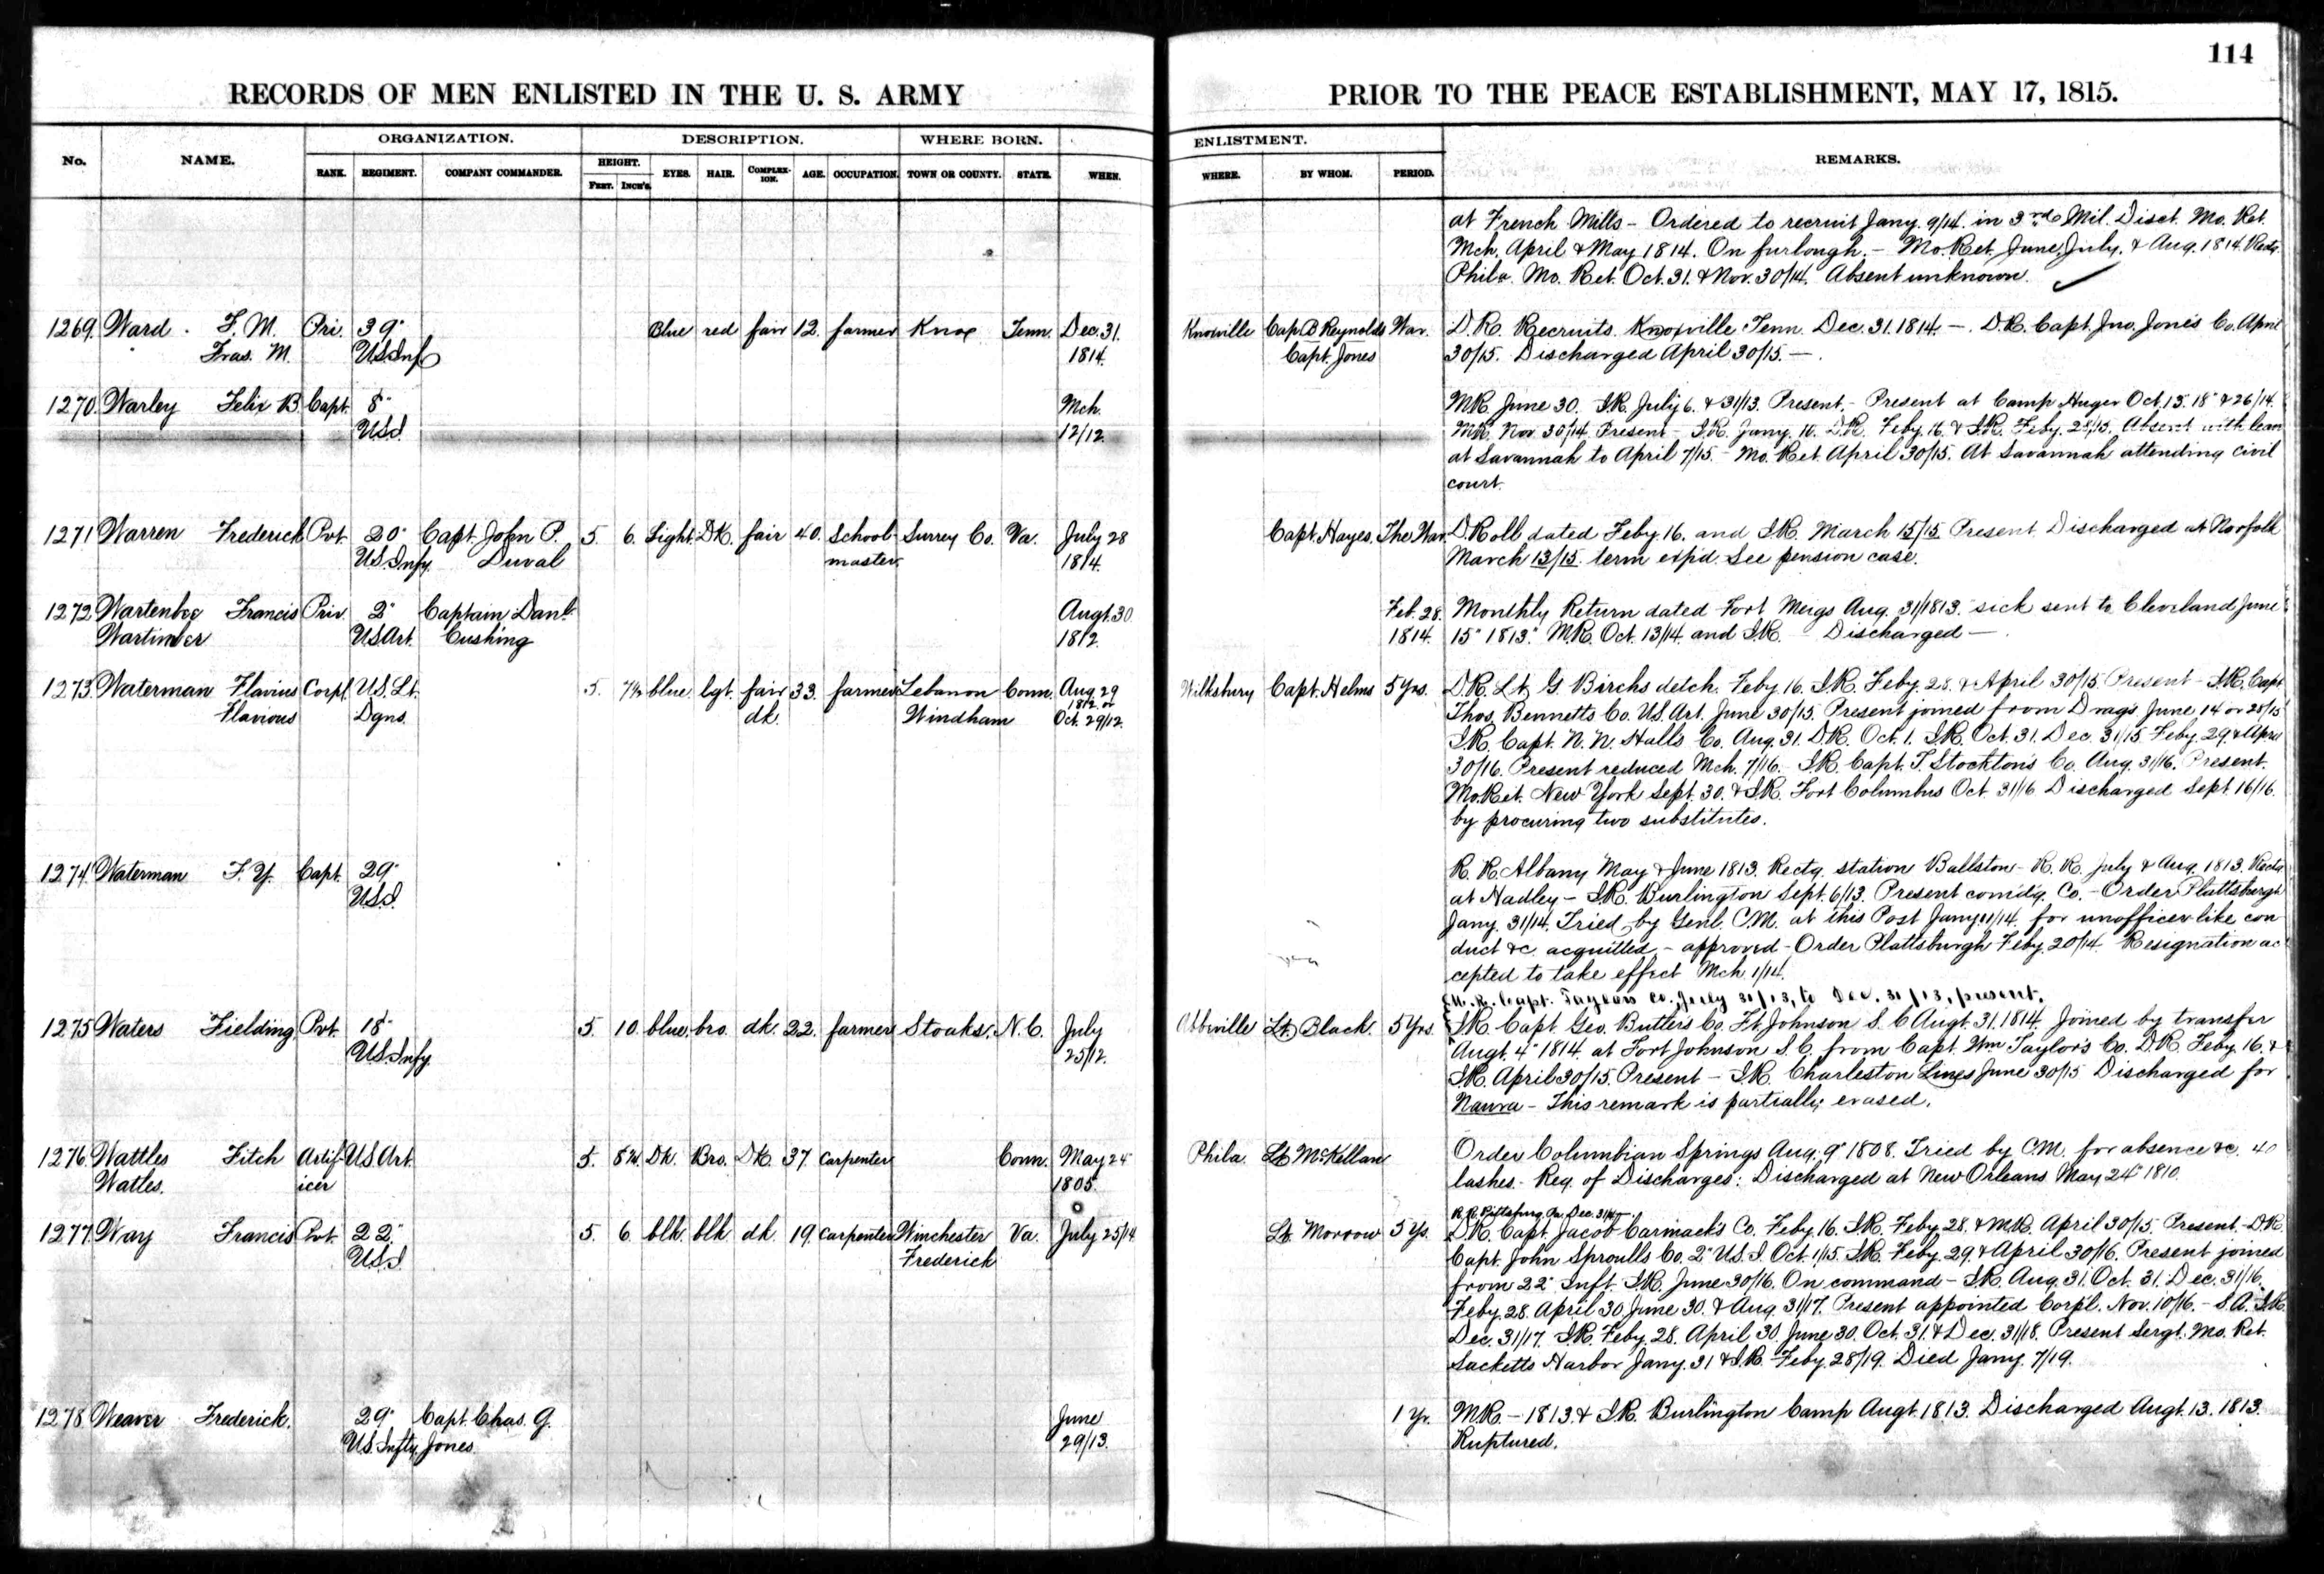 114
RECORDS OF MEN ENLISTED IN THE U. S. ARMY PRIOR TO THE PEACE ESTABLISHMENT, MAY 17, 1815.
No. NAME. ORGANIZATION. DESCRIPTION. WHERE BORN. ENLISTMENT. REMARKS.
RANK. REGIMENT. COMPANY COMMANDER. HEIGHT. EYES. HAIR. COMPLEXION. AGE. OCCUPATION. TOWN OR COUNTY. STATE. WHEN. WHERE. BY WHOM. PERIOD.
FEET. INCH'S.
at French Mills - Ordered to recruit Jany. 9/14. in 3rd Mil. Disct. Mo. Ret.
Mch. April & May 1814. On furlough. - Mo. Ret. June, July, & Aug. 1814. Rectg.
Phila. Mo. Ret. Oct. 31. & Nov. 30/14. Absent unknown.
1269. Ward. F. M. Pri. 39" Blue red fair 12. farmer Knox Tenn. Dec. 31. Knoxville Cap. B Reynolds War. D.R. Recruits. Knoxville Tenn. Dec. 31. 1814. -. D.R. Capt. Jno. Jones Co. April
Fras. M. U.S. Inf 1814. Capt. Jones 30/15. Discharged April 30/15. -.
1270. Warley Felix B. Capt. 8" Mch. MR. June 30. I.R. July 6. & 31/13. Present. - Present at Camp Huger Oct. 13. 18" & 26/14.
U.S.I. 12/12. MR. Nov. 30/14. Present - I.R. Jany. 16. D.R. Feby. 16. & I.R. Feby. 28/15. Absent with leave
at Savannah to April 7/15. - Mo. Ret. April 30/15. At Savannah attending civil
court.
1271 Warren Frederick Pvt. 20" Capt. John P. 5 6. Light. DK. fair 40. School Surrey Co. Va. July 28 Capt. Hayes. The War. D. Roll dated Feby. 16. and I.R. March 15/15. Present. Discharged at Norfolk
U.S. Infy. Duval master. 1814. March 13/15. term exp'd. See pension case.
1272. Wartenbee Francis Priv. 2" Captain Danl. Augt. 30 Feb. 28. Monthly Return dated Fort Meigs Aug. 31/1813. sick sent to Cleveland June
Wartinber U.S. Art. Cushing 1812. 1814. 15" 1813". M.R. Oct. 13/14. and I.R. Discharged -
1273. Waterman Flavius Corpl. U.S. Lt. 5. 7½ blue. lgt. fair 33. farmer Lebanon Conn. Aug. 29 Wilksbury Capt. Helms 5 Yrs. D.R. Lt. G. Birchs detch. Feby. 16. I.R. Feby. 28. & April 30/15. Present - I.R. Capt.
Flavious Dgns. dk. Windham 1812. or Oct. 29/12. Thos. Bennetts Co. U.S. Art. June 30/15. Present joined from Drags. June 14 or 28/15
I.R. Capt. N. N. Halls Co. Aug. 31. D.R. Oct. 1. I.R. Oct. 31. Dec. 31/15. Feby. 29. & April
30/16. Present reduced Mch. 7/16. - I.R. Capt. T. Stocktons Co. Aug. 31/16. Present.
Mo. Ret. New York Sept. 30. & I.R. Fort Columbus Oct. 31/16 Discharged Sept. 16/16.
by procuring two substitutes.
1274. Waterman F. Y. Capt. 29" R. R. Albany May & June 1813. Rectg. station Ballston - R. R. July & Aug. 1813. Rectg.
U.S.I. at Hadley - I.R. Burlington Sept. 6/13. Present comdg. Co. - Order Plattsburgh
Jany. 31/14. Tried by Genl. C.M. at this Post Jany. 11/14. for unofficer like con
duct &c. acquitted. - approved - Order Plattsburgh Feby. 20/14. Resignation ac
cepted to take effect Mch. 1/14.
M. R. Capt. Taylors Co. July 31/13, to Dec. 31/13, present.
1275 Waters Fielding Pvt. 18" 5. 10. blue bro. dk. 22. farmer Stoaks. N. C. July Abbiville Lt. Black. 5 Yrs. I.R. Capt. Geo. Butlers Co. Ft. Johnson S. C Augt. 31. 1814. Joined by transfer
U.S. Infy. 25/12. Augt. 4" 1814. at Fort Johnson S. C. from Capt. Wm Taylor's Co. D.R. Feby. 16. &
I.R. April 30/15. Present - I.R. Charleston Lines June 30/15 Discharged for
Naura - This remark is partially erased.
1276. Wattles Fitch Artif U.S. Art. 5. 8¾. Dk. Bro. DK. 37. carpenter Conn. May 24" Phila. Lt. McKellan Order Columbian Springs Aug. 9" 1808. Tried by C.M. for absence &c. 40
Watles. icer 1805. lashes. - Reg. of Discharges: Discharged at New Orleans May 24" 1810.
R.R. Pittsburg Pa. Dec. 31/14 -
1277. Way Francis Pvt. 22" 5. 6. blk. blk dk 19. carpenter Winchester Va. July 25/14 Lt. Morrow 5 Ys. D.R. Capt. Jacob Carmack's Co. Feby. 16. I.R. Feby. 28. & M.R. April 30/15. Present. - D.R.
U.S.I. Frederick Capt. John Sproulls Co. 2" U.S.I. Oct. 1/15. I.R. Feby. 29 & April 30/16. Present joined
from 22" Inft. I.R. June 30/16. On command - I.R. Aug. 31. Oct. 31. Dec. 31/16.
Feby. 28. April 30. June 30. & Aug. 31/17. Present appointed Corpl. Nov. 10/16. - S.A. I.R.
Dec. 31/17. I.R. Feby. 28. April 30. June 30. Oct. 31. & Dec. 31/18. Present Sergt. Mo. Ret.
Sacketts Harbor Jany. 31 & I.R. Feby. 28/19. Died Jany. 7/19.
1278 Weaver Frederick. 29" Capt. Chas. G. June 1 Yr. M.R. - 1813. & I.R. Burlington Camp Augt. 1813. Discharged Augt. 13. 1813.
U.S. Infty. Jones. 29/13. Ruptured.